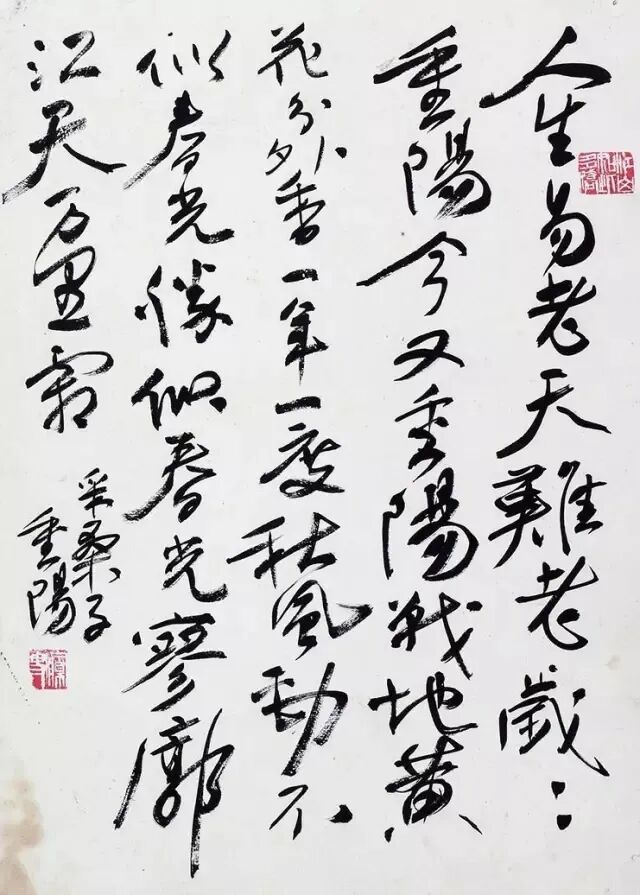 人生易老天難老歲々
重陽今又重陽戰地黃
花分外香一年一度秋風勁不
似春光勝似春光寥廓
江天万里霜
采桑子
重陽